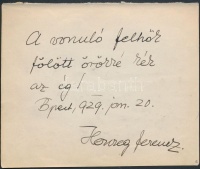 A vonuló felhők
fölött örökké kék
az ég!
Bpest, 929. jan. 20.
Herczeg Ferencz.